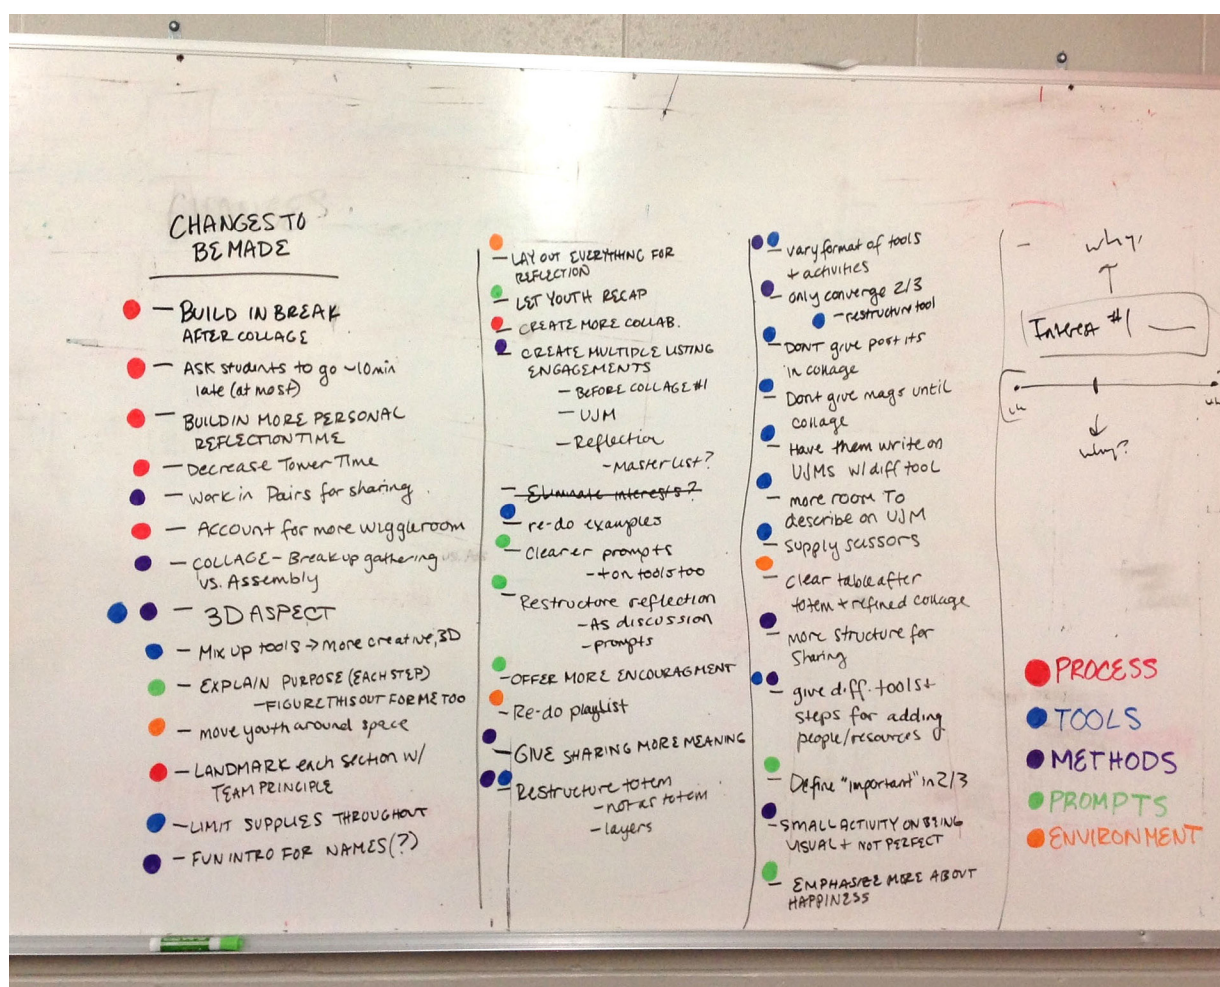 CHANGES TO
BE MADE
— BUILD IN BREAK
AFTER COLLAGE
— ASK students to go ~10min
late (at most)
— BUILD IN MORE PERSONAL
REFLECTION TIME
— Decrease Tower Time
— Work in Pairs for sharing
— Account for more wiggleroom
— COLLAGE - Break up gathering
vs. Assembly
— 3D ASPECT
— Mix up tools → More creative, 3D
— EXPLAIN PURPOSE (EACH STEP)
- FIGURE THIS OUT FOR ME TOO
— move youth around space
— LANDMARK each section w/
TEAM PRINCIPLE
— LIMIT SUPPLIES THROUGHOUT
— FUN INTRO FOR NAMES (?)
— LAY OUT EVERYTHING FOR
REFLECTION
— LET YOUTH RECAP
— CREATE MORE COLLAB.
— CREATE MULTIPLE LISTING
ENGAGEMENTS
- BEFORE COLLAGE #1
- UJM
- Reflection
- Master list?
— Eliminate interests?
— re-do examples
— Clearer prompts
- + on tools too
— Restructure reflection
- AS discussion
- prompts
— OFFER MORE ENCOURAGMENT
— Re-do playlist
— GIVE SHARING MORE MEANING
— Restructure totem
- not as totem
- layers
— vary format of tools
+ activities
— only converge 2/3
- restructure tool
— DONT give post its
in collage
— Dont give mags until
collage
— Have them write on
UJMs w/ diff tool
— more room TO
describe on UJM
— supply scissors
— clear table after
totem + refined collage
— more structure for
Sharing
— give diff. tools +
steps for adding
people/resources
— Define "important" in 2/3
— SMALL ACTIVITY ON BEING
VISUAL + NOT PERFECT
— EMPHASIZE MORE ABOUT
HAPPINESS
— why?
↑
Interest #1 —
↓
why?
PROCESS
TOOLS
METHODS
PROMPTS
ENVIRONMENT